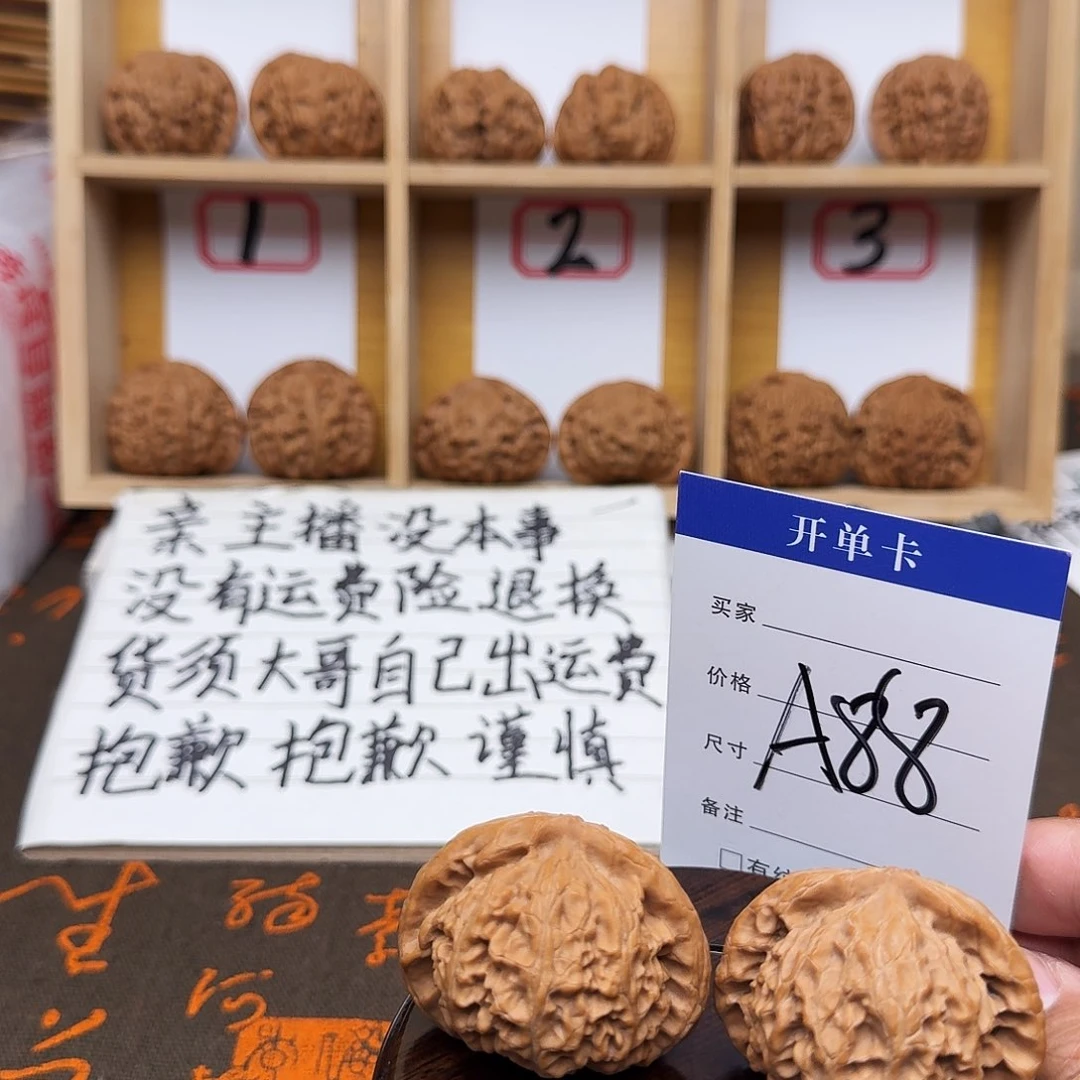 1
2
3
亲主播没本事
没有运费险退换
货须大哥自己出运费
抱歉抱歉谨慎
开单卡
买家
价格
A88
尺寸
备注